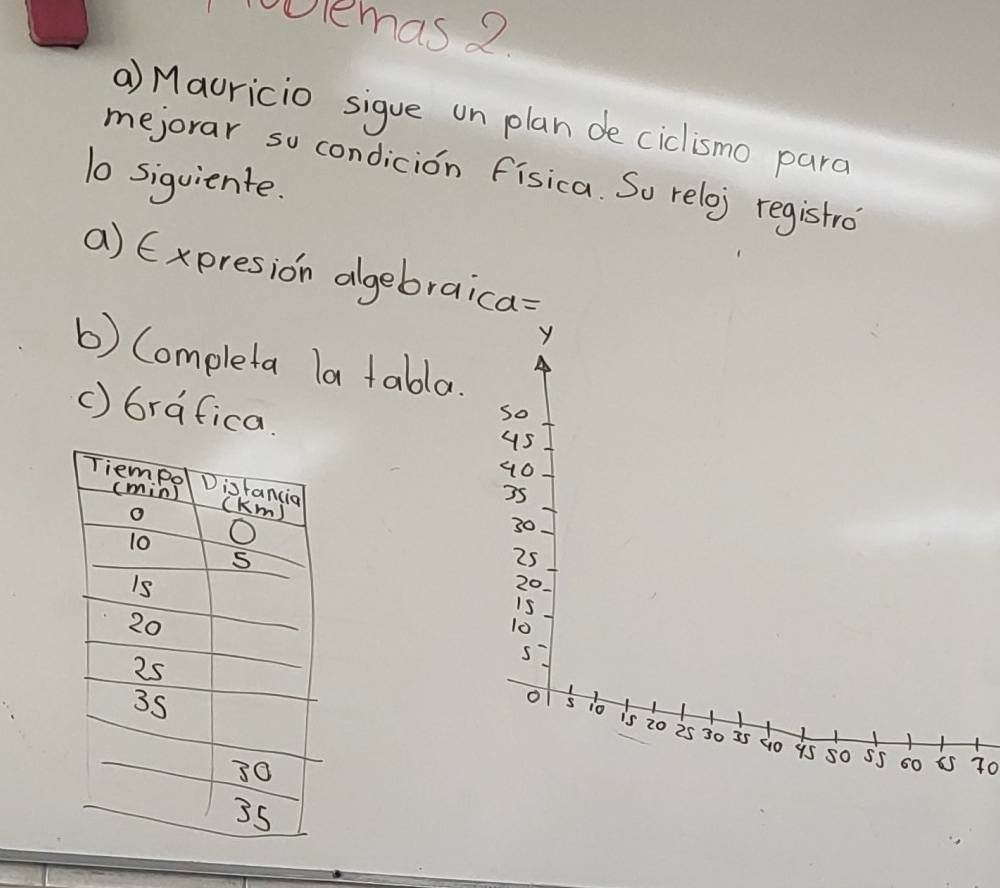 2.
a) Mauricio sigue un plan de ciclismo para
mejorar su condición física. Su reloj registró
lo siguiente.
a) Expresión algebraica=
b) Completa la tabla.
c) Gráfica.
Tiempo (min) Distancia (km)
0 0
10 5
15
20
25
35
30
35
y
50
45
40
35
30
25
20
15
10
5
0 5 10 15 20 25 30 35 40 45 50 55 60 65 70